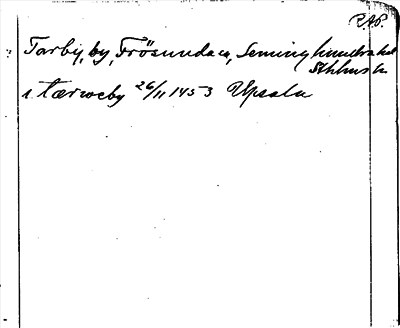 RAP.
Tarby, by, Frösunda sn, Seminghundra hd
Sthlms ln
i tærweby 26/11 1453 Upsala